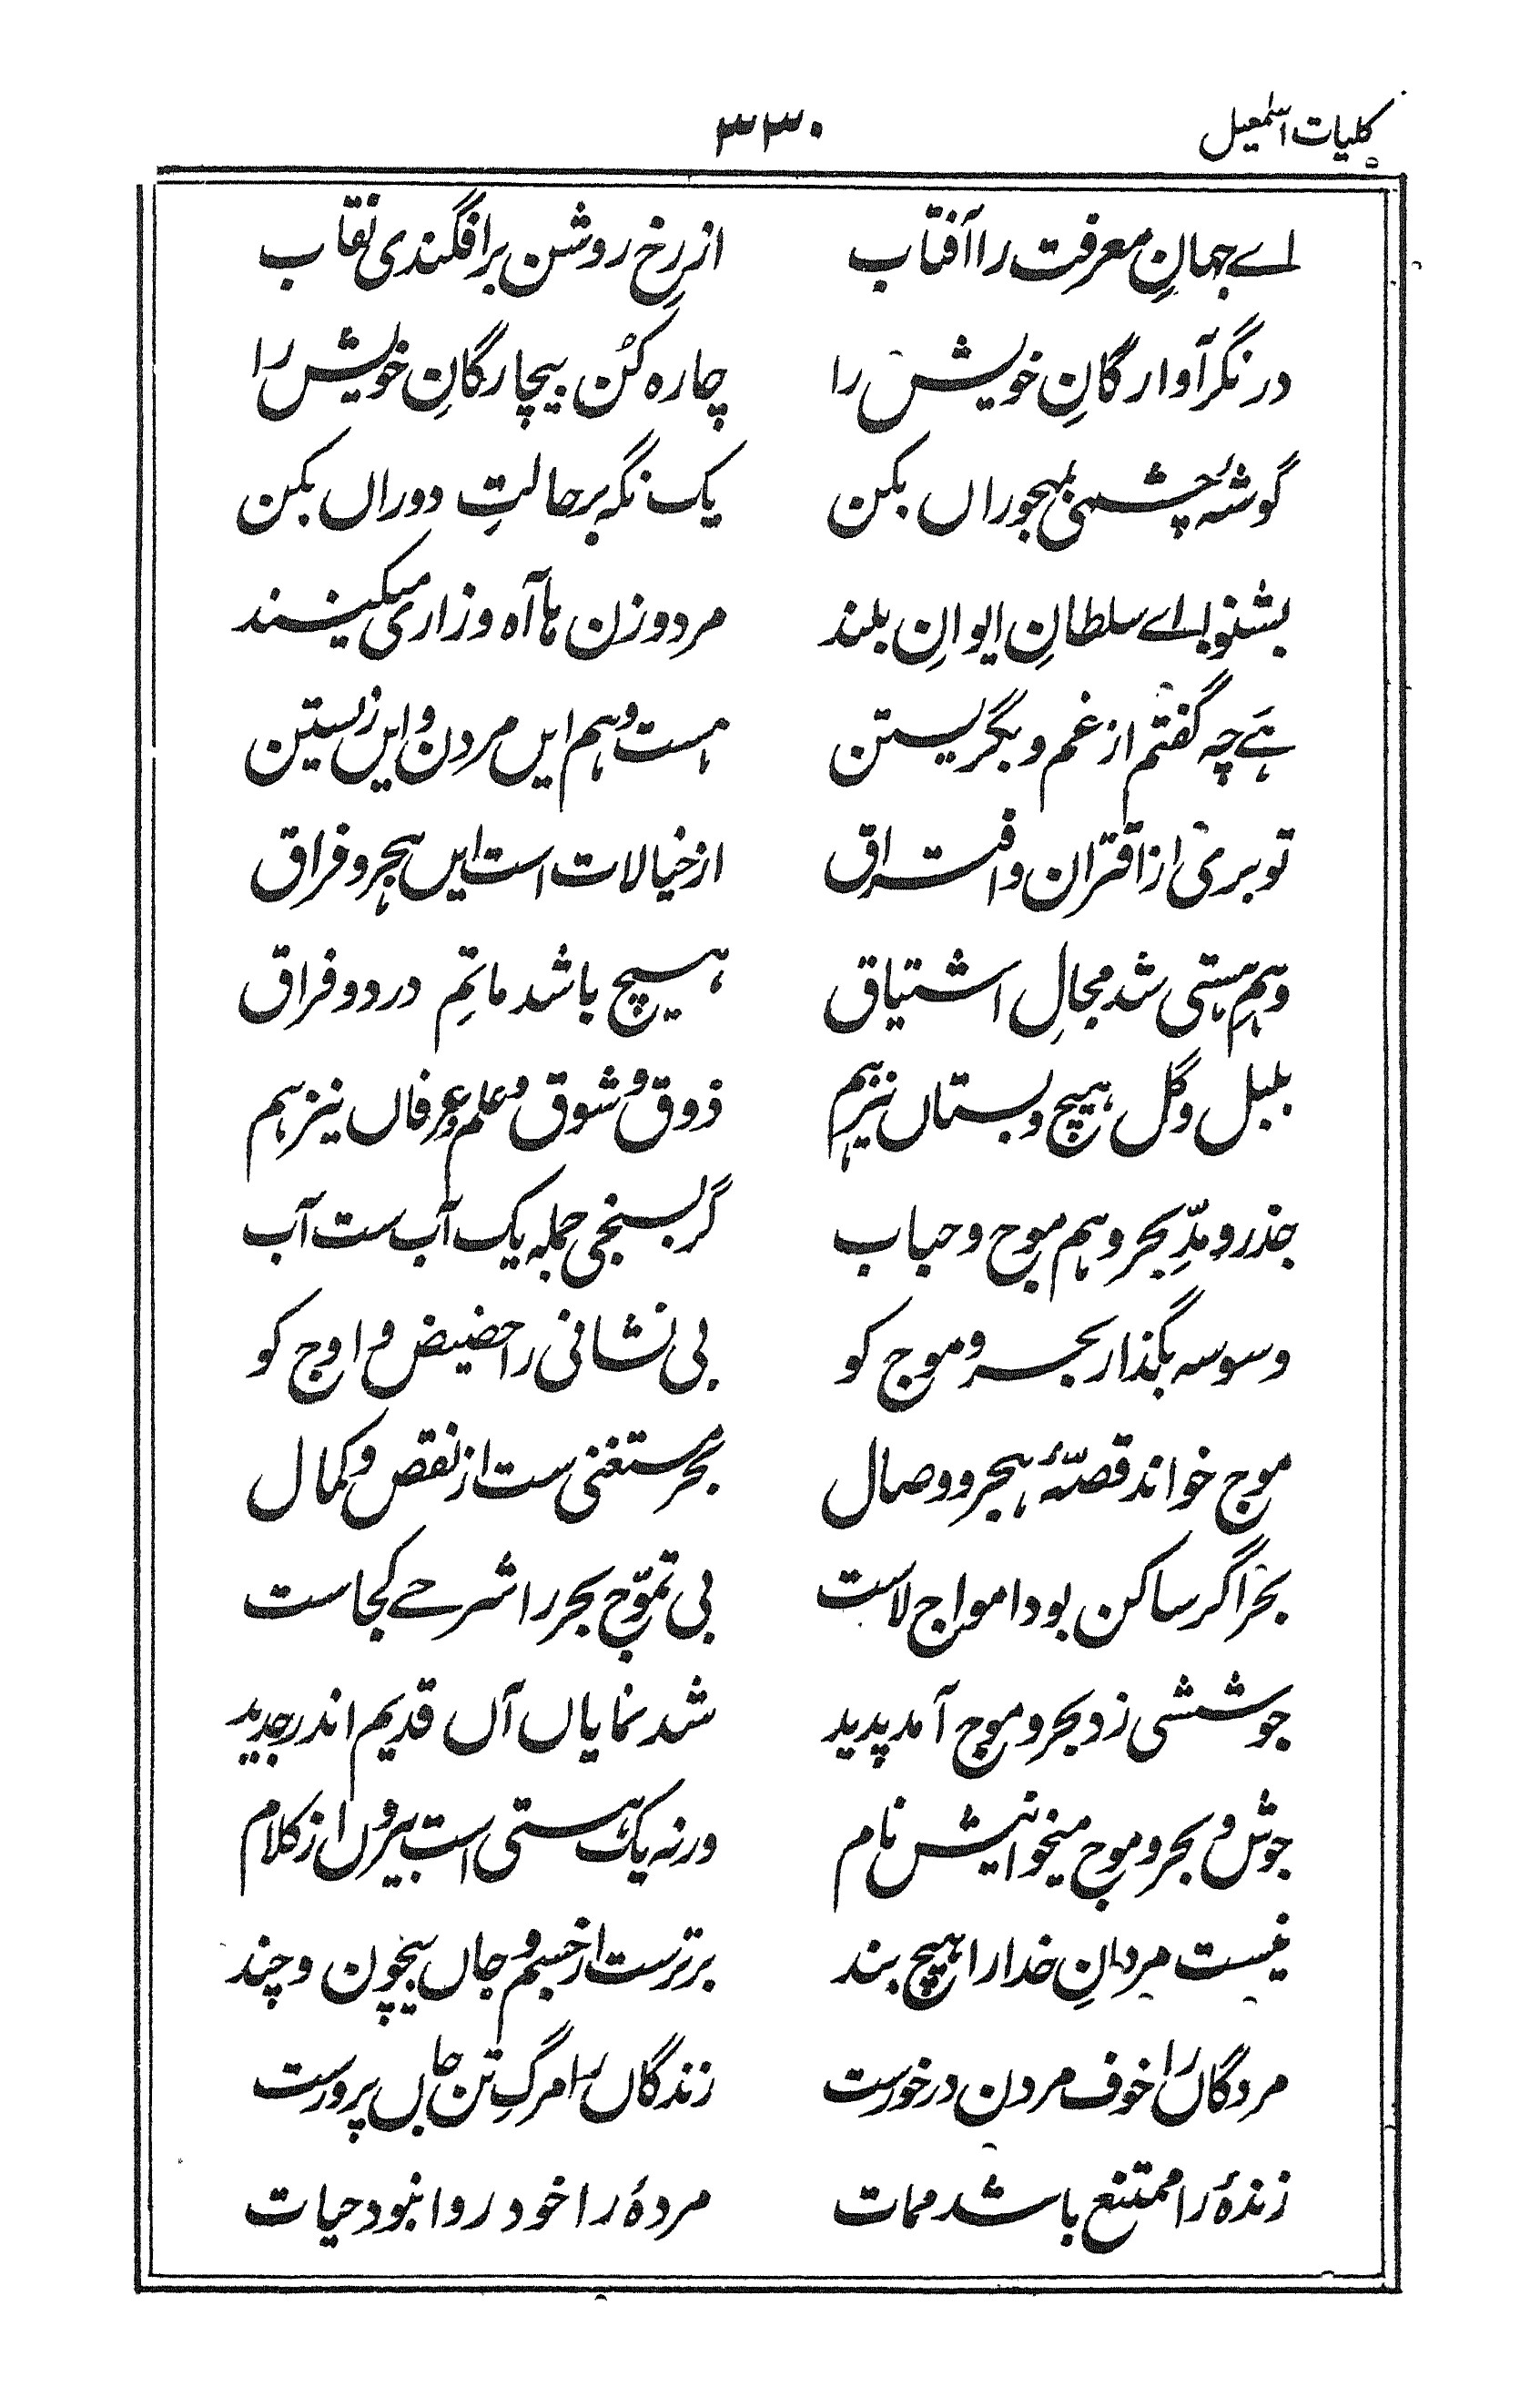 کلیات اسمٰعیل ۳۳۰
اے جہانِ معرفت را آفتاب از رخِ روشن برافگندی نقاب
در نگر آوارگانِ خویش را چارہ کُن بیچارگانِ خویش را
گوشۂ چشمی بمہجوراں بکن یک نگہ بر حالتِ دوراں بکن
بشنو! اے سلطانِ ایوانِ بلند مرد و زن ہا آہ و زاری میکنند
ہَے چہ گفتم از غم و بگریستن ہست وہم ایں مردن و ایں زیستن
تو بری از اقتران و افتراق از خیالات است ایں ہجر و فراق
وہمِ ہستی شد مجالِ اشتیاق ہیچ باشد ماتمِ درد و فراق
بلبل و گل ہیچ و بستاں نیز ہم ذوق و شوق و علم و عرفاں نیز ہم
جذر و مدِّ بحر و ہم موج و حباب گر بسنجی جملہ یک آب ست آب
وسوسہ بگذار بحر و موج کو بی نشانی را حضیض و اوج کو
موج خواند قصّۂ ہجر و وصال بحر مستغنی ست از نقص و کمال
بحر اگر ساکن بود امواج لاست بی تموّج بحر را شرحے کجاست
جوششی زد بحر و موج آمد پدید شد نمایاں آں قدیم اندر جدید
جوش و بحر و موج میخوانیش نام ورنہ یک ہستی است بیروں از کلام
نیست مردانِ خدا را ہیچ بند برترست از جسم و جاں بیچون و چند
مردگاں را خوف مردن درخورست زندگاں را مرگِ تن جاں پرورست
زندۂ را ممتنع باشد ممات مردۂ را خود روا نبود حیات